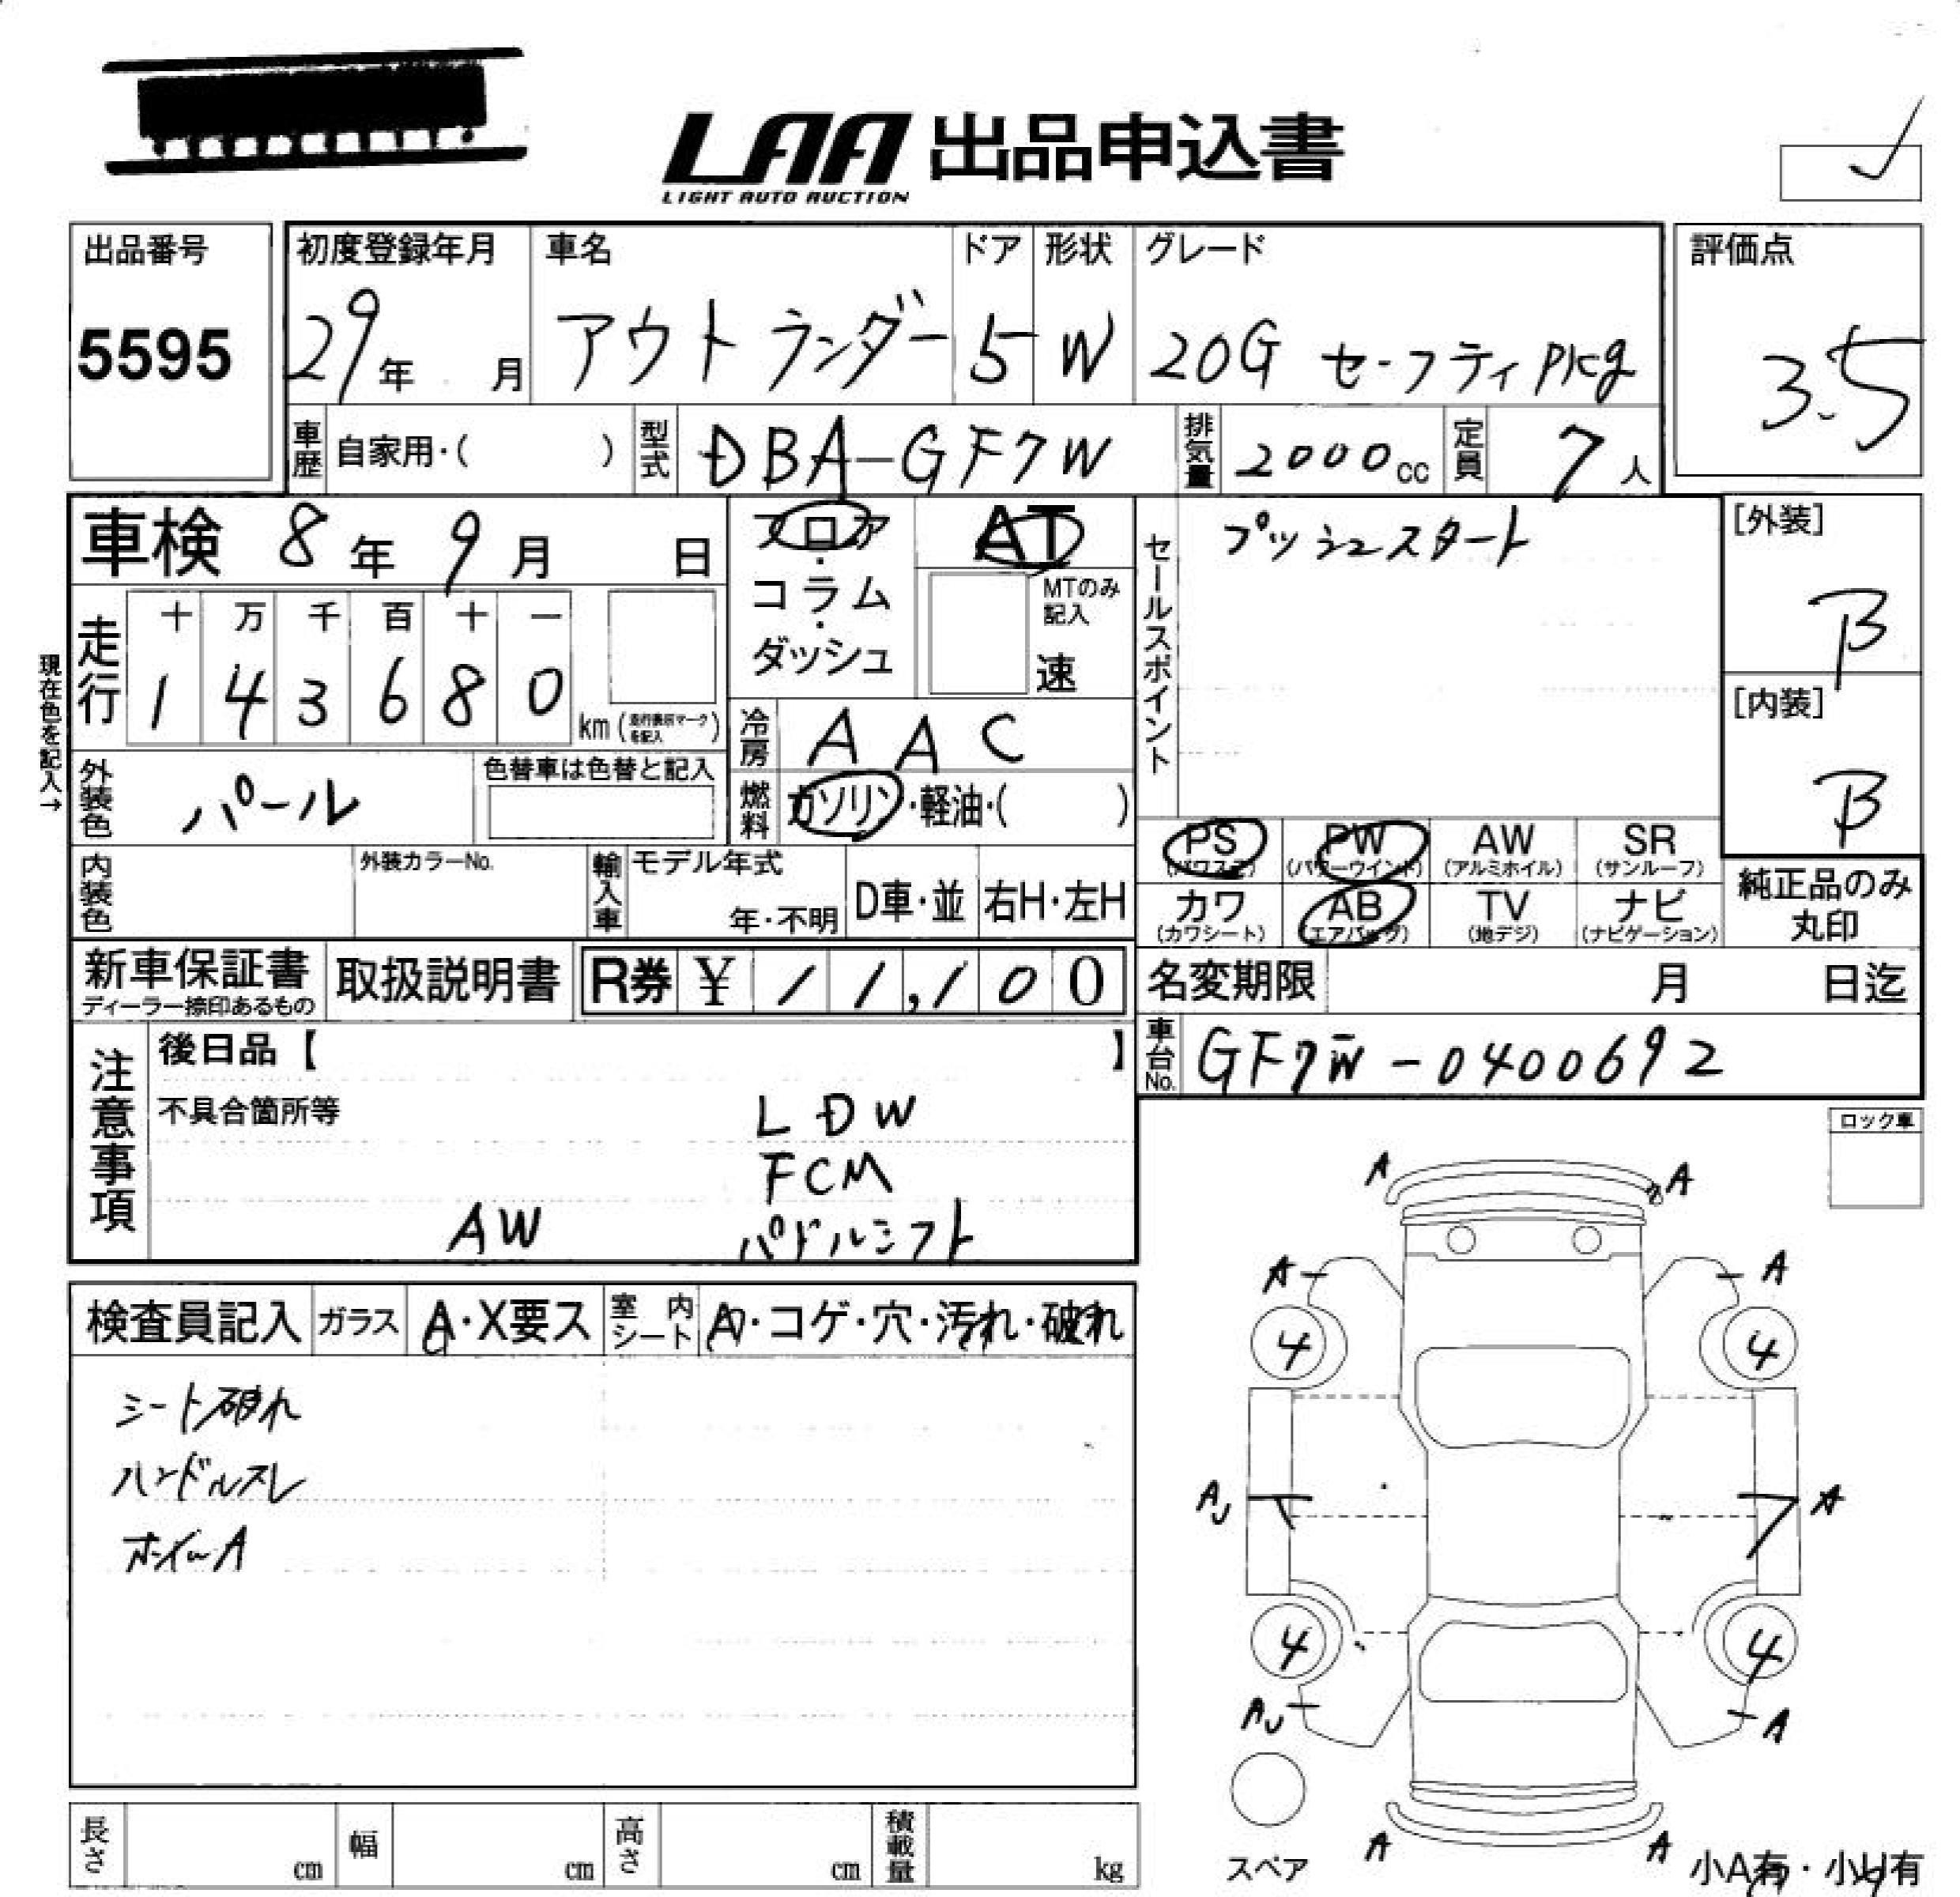 LAA 出品申込書
LIGHT AUTO AUCTION
出品番号
5595
初度登録年月
29年 月
車名
アウトランダー
ドア
5
形状
W
グレード
20G セーフティPkg
評価点
3.5
車歴 自家用・( )
型式 DBA-GF7W
排気量 2000cc
定員 7人
車検 8年 9月 日
フロア・コラム・ダッシュ
AT
MTのみ記入
速
セールスポイント
プッシュスタート
[外装]
B
[内装]
B
現在色を記入→
走行
十 万 千 百 十 一
1 4 3 6 8 0 km (走行換算マークを記入)
冷房 AAC
燃料 ガソリン・軽油・( )
外装色 パール
色替車は色替と記入
内装色
外装カラーNo.
輸入車
モデル年式
年・不明
D車・並
右H・左H
PS (パワステ)
PW (パワーウインド)
AW (アルミホイル)
SR (サンルーフ)
カワ (カワシート)
AB (エアバッグ)
TV (地デジ)
ナビ (ナビゲーション)
純正品のみ丸印
新車保証書
ディーラー捺印あるもの
取扱説明書
R券 ¥ 11,100
名変期限 月 日迄
車台No. GF7W-0400692
注意事項
後日品【 】
不具合箇所等
LDW
FCM
AW パドルシフト
ロック車
検査員記入
ガラス A・X要ス
室内シート
・コゲ・穴・汚れ・破れ
シート破れ
ハンドルスレ
ホイールA
A A
A A
4 4
AU A
4 4
AU A
A A
スペア
小A有・小U有
長さ cm
幅 cm
高さ cm
積載量 kg